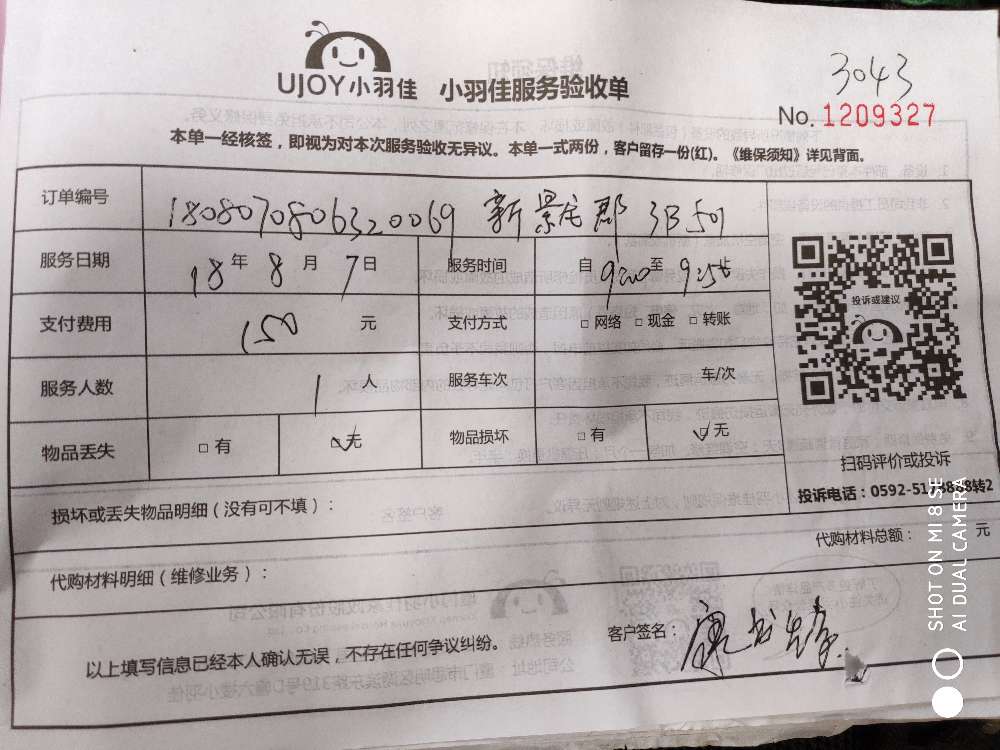 UJOY小羽佳 小羽佳服务验收单
3043
No. 1209327
本单一经核签，即视为对本次服务验收无异议。本单一式两份，客户留存一份(红)。《维保须知》详见背面。
订单编号 1808070806320069 新景 郡 3B501
服务日期 18 年 8 月 7 日 服务时间 自 9:00 至 9:25
支付费用 150 元 支付方式 □ 网络 □ 现金 □ 转账
投诉或建议
服务人数 1 人 服务车次 车/次
物品丢失 □ 有 ☑ 无 物品损坏 □ 有 ☑ 无
扫码评价或投诉
投诉电话：0592-5178888转2
损坏或丢失物品明细（没有可不填）：
代购材料总额： 元
代购材料明细（维修业务）：
客户签名：康
以上填写信息已经本人确认无误，不存在任何争议纠纷。
SHOT ON MI 8 SE
AI DUAL CAMERA